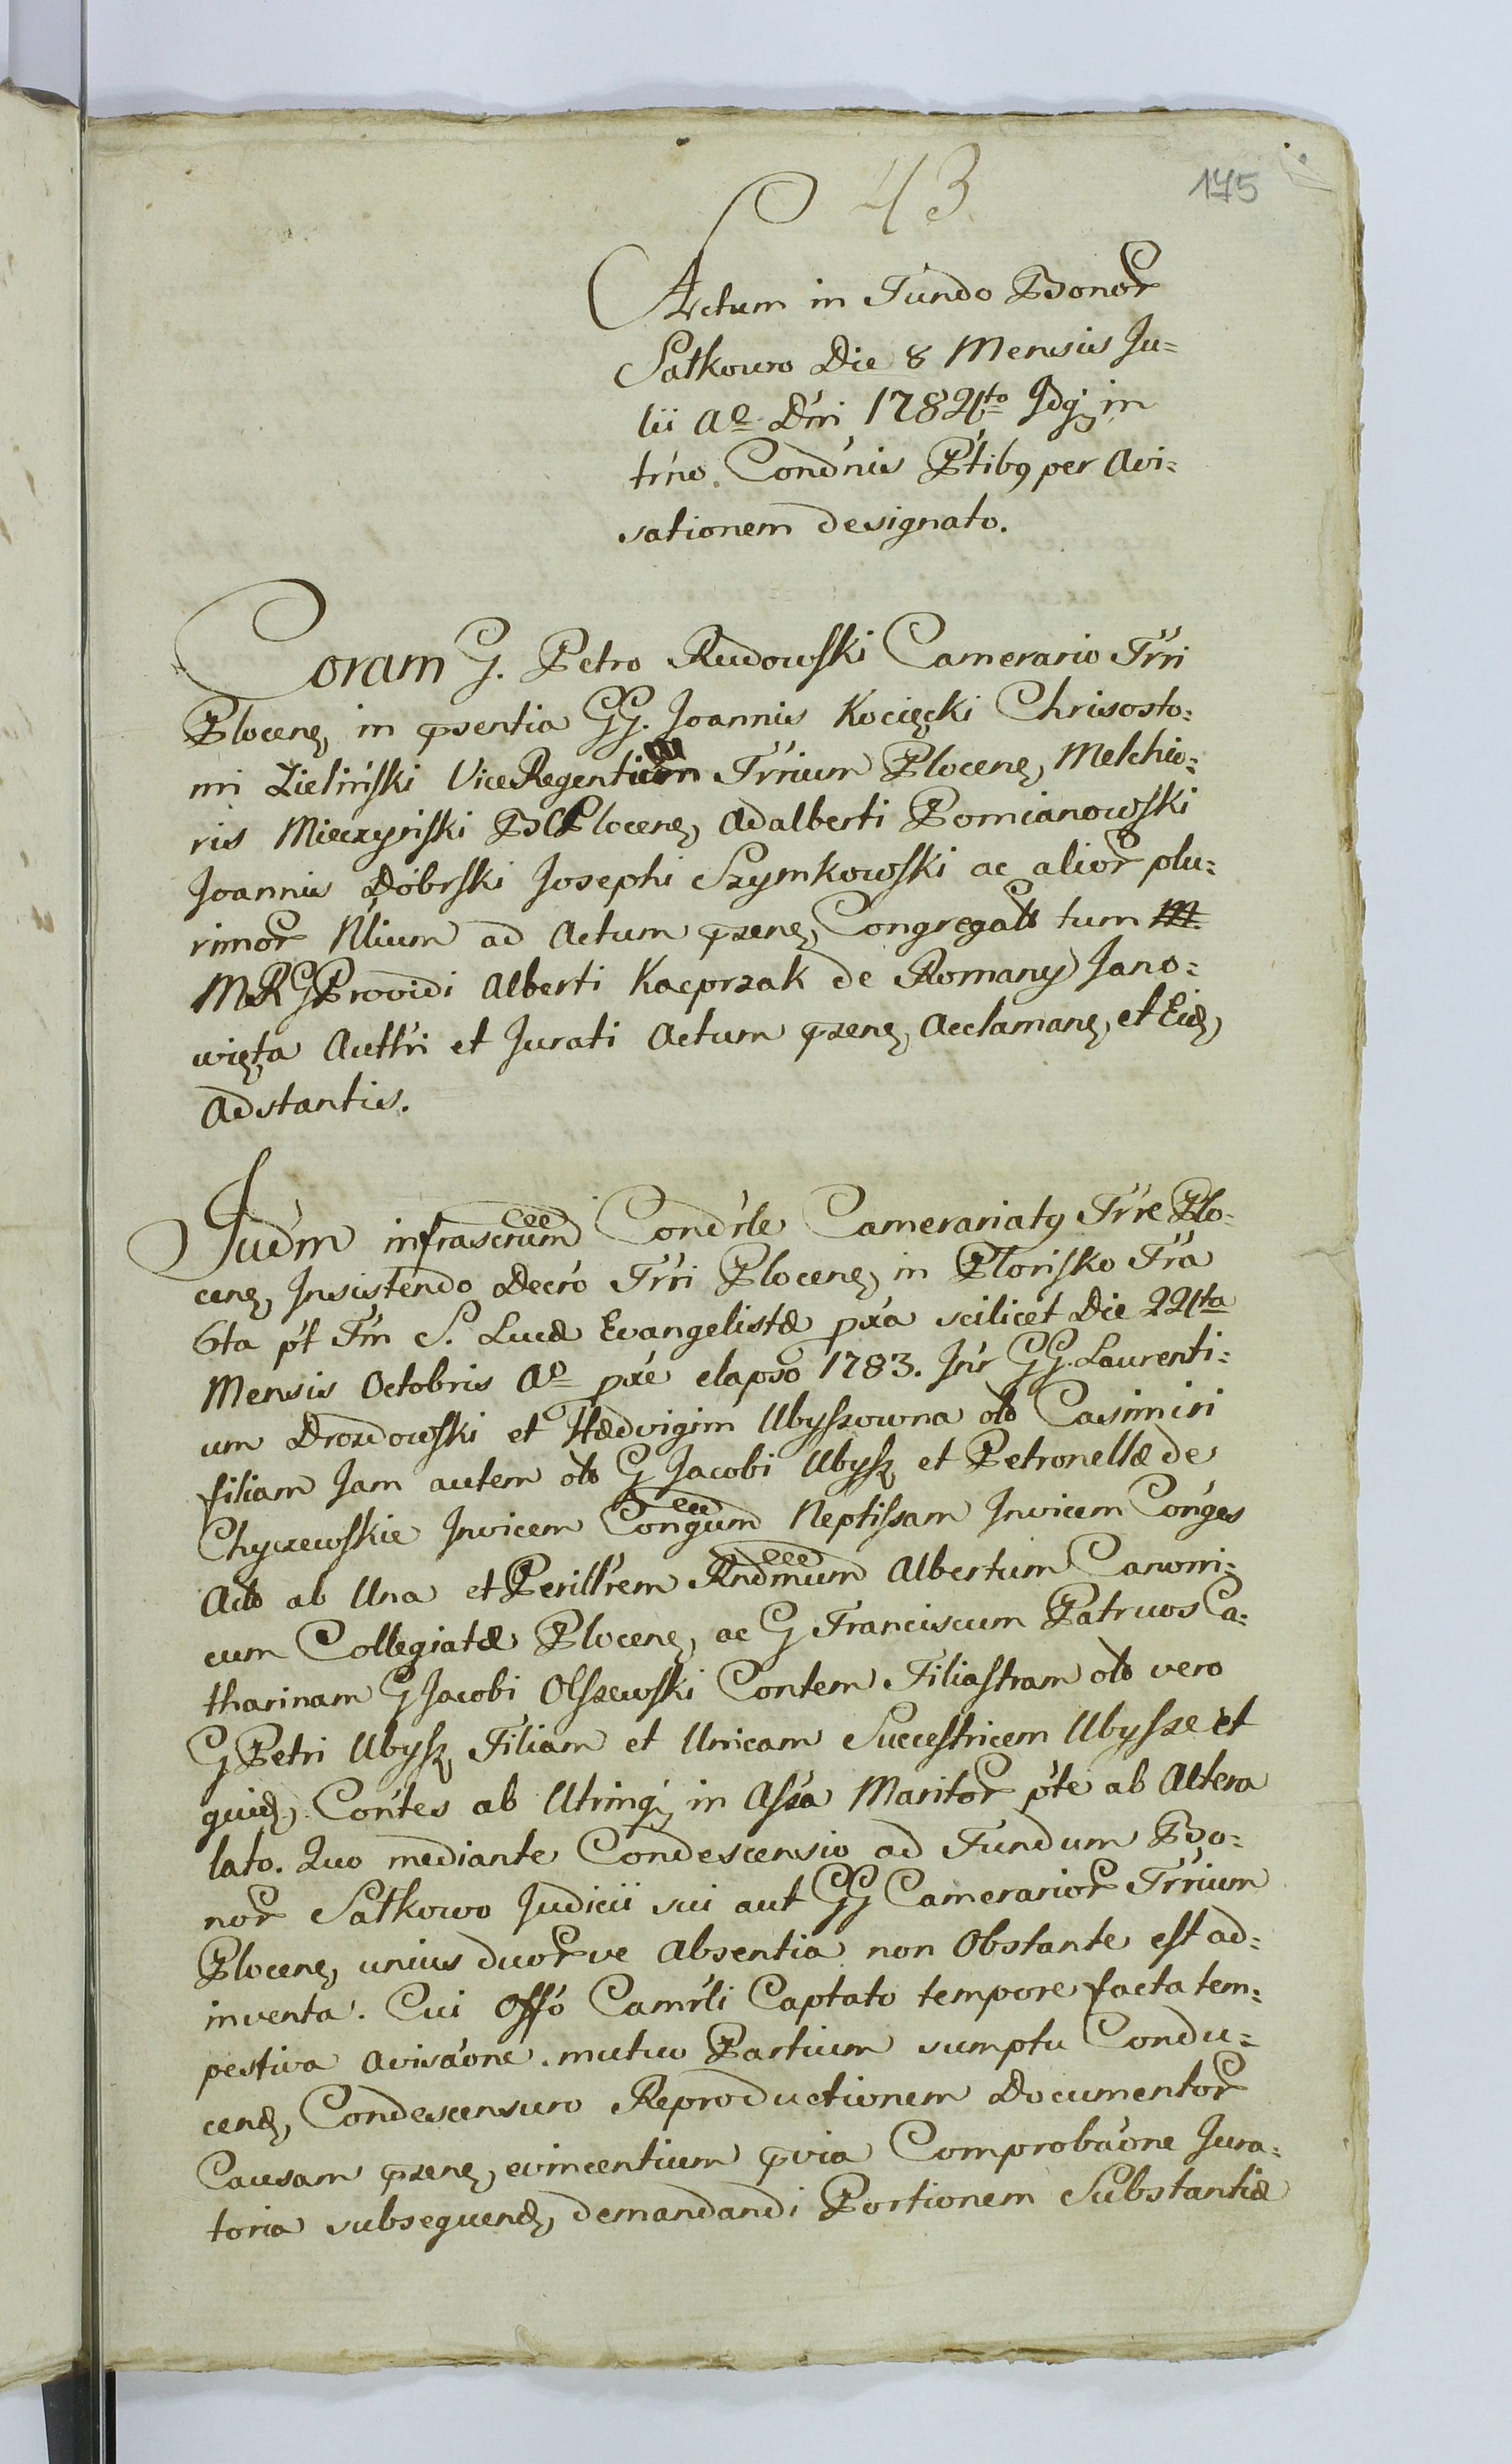 43
175
Actum in Fundo Bonor
Satkowo Die 8 Mensis Ju=
lii Ao Dni 1784to Idq in
trno. Condnis Ptibq per Avi=
sationem designato.
Coram G. Petro Rudowski Camerario Trri
Plocen, in psentia GG. Joannis Kocięcki Chrisosto=
mi Zieliński ViceRegentium Trrium Plocen, Melchio=
ris Mieczyński Plocen, Adalberti Pomianowski
Joannis Dóbrski Josephi Szymkowski ac alior plu=
rimor Nlium ad Actum psen, Congregat tum M
MRG Providi Alberti Kacprzak de Romany Jano=
więta Autthri et Jurati Actum psen, Acclaman, et Eid,
Adstantis.
Judm infrascrum Condrle Camerariatq Trre Plo=
cen, Insistendo Decro Trri Plocen, in Płońsko Fra
6ta pt Fm S. Lucæ Evangelistæ pxa scilicet Die 224ta
Mensis Octobris Ao pxe elapso 1783. Inr GG. Laurenti=
um Drozdowski et Hædvigim Ubyszowna olo Casimiri
filiam Jam autem olo G Jacobi Ubysz et Petronellæ de
Chyczewskie Invicem Congum Neptissam Invicem Conges
Acto ab Una et Perillrem Rndmum Albertum Canoni=
cum Collegiatæ Plocen, ac G Franciscum Patruos Ca=
tharinam G Jacobi Olszewski Contem Filiastram olo vero
G Petri Ubysz Filiam et Unicam Successtricem Ubysze et
quid, Contes ab Utrinq, in Assa Maritor pte ab Altera
lato. Quo mediante Condescensio ad Fundum Bo=
nor Satkowo Judicii sui aut GG Camerarior Trrium
Plocen, unius duorve Absentia non Obstante est ad=
inventa. Cui Offo Camrli Captato tempore facta tem=
pestiva Avisaone. mutuo Partium sumptu Condu=
cend, Condescensuro Reproductionem Documentor
Causam psen, evincentium pvia Comprobaone Jura=
toria subsequend, demandandi Portionem Substantiæ